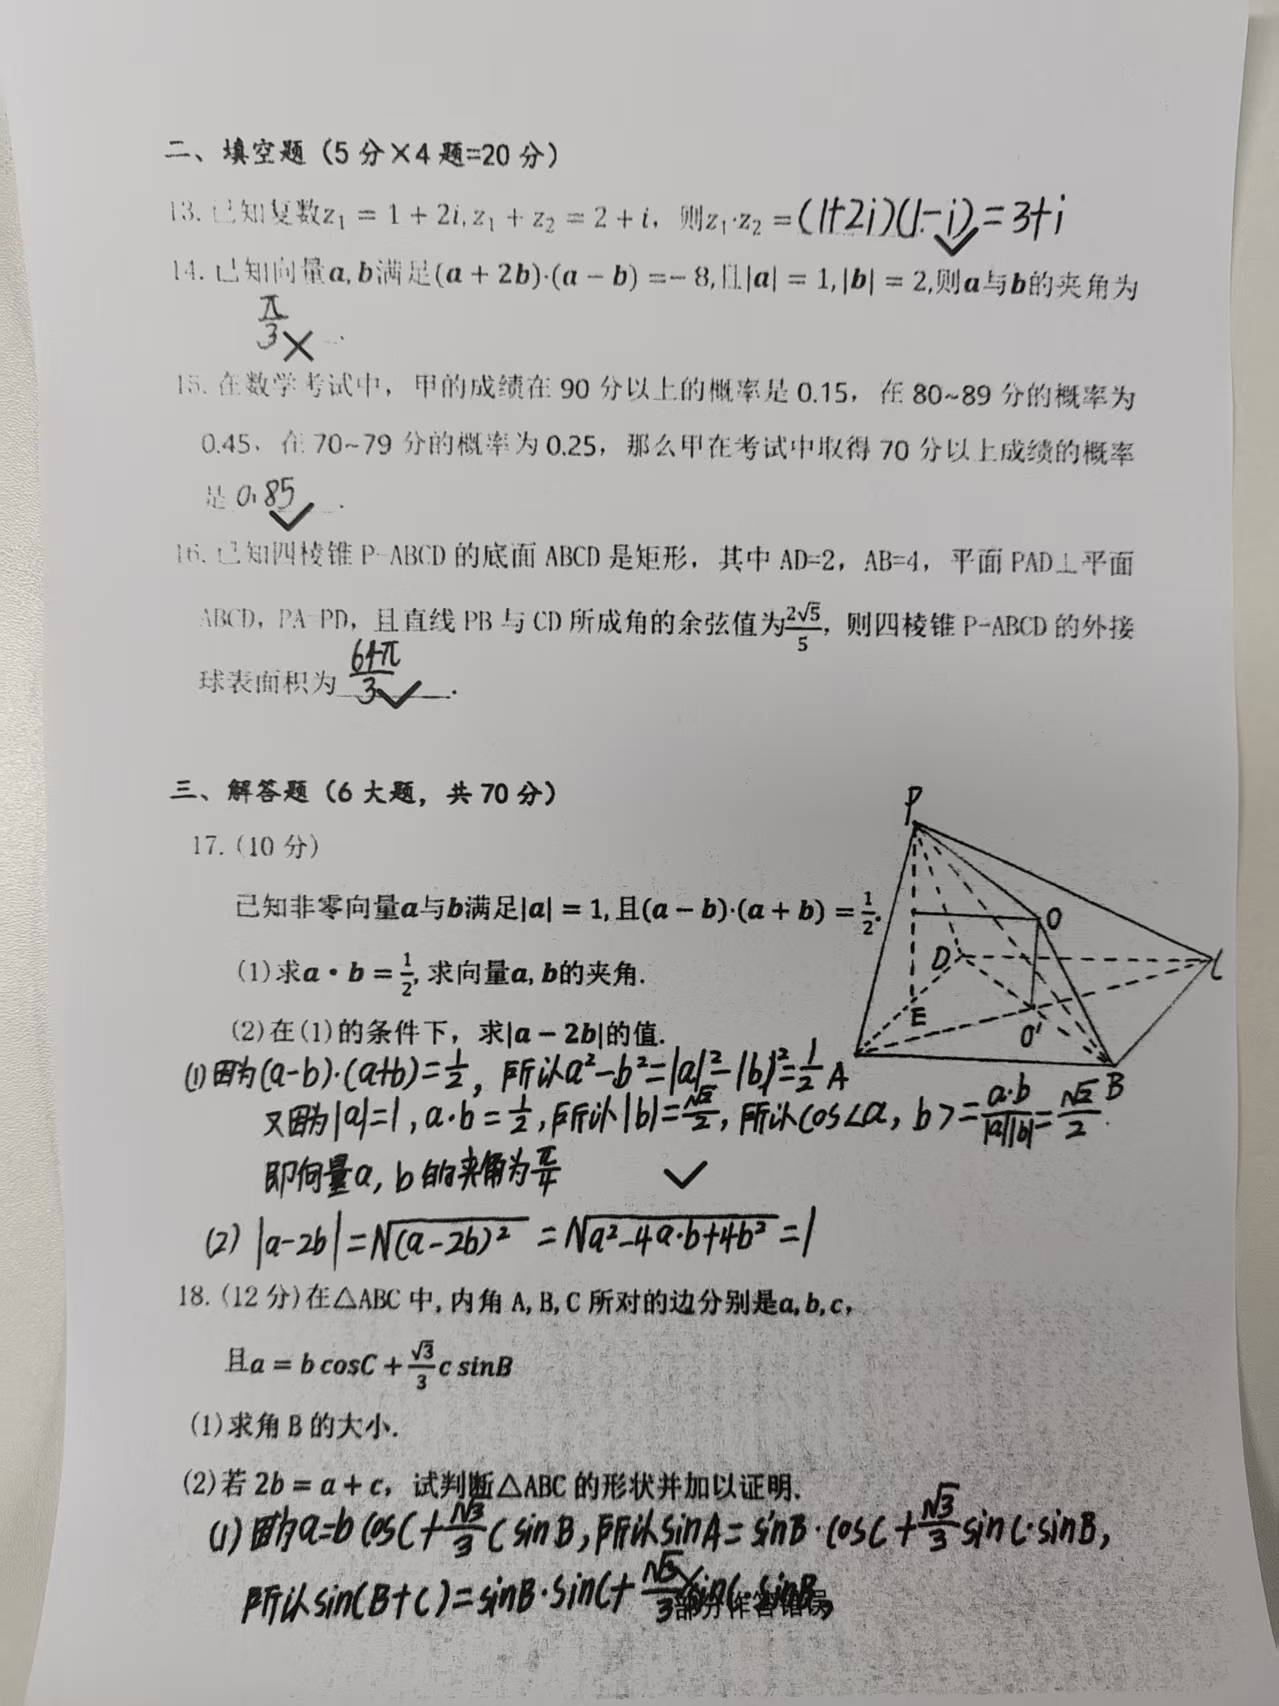 二、填空题（5 分×4 题=20 分）
13. 已知复数z₁ = 1 + 2i, z₁ + z₂ = 2 + i，则z₁·z₂ = (1+2i)(1-i) = 3+i
14. 已知向量a, b满足(a + 2b)·(a − b) =− 8,且|a| = 1, |b| = 2,则a与b的夹角为
π/3 .
15. 在数学考试中，甲的成绩在 90 分以上的概率是 0.15，在 80~89 分的概率为
0.45，在 70~79 分的概率为 0.25，那么甲在考试中取得 70 分以上成绩的概率
是 0.85 .
16. 已知四棱锥 P-ABCD 的底面 ABCD 是矩形，其中 AD=2，AB=4，平面 PAD⊥平面
ABCD，PA=PD，且直线 PB 与 CD 所成角的余弦值为2√5/5，则四棱锥 P-ABCD 的外接
球表面积为 64π/3 .
三、解答题（6 大题，共 70 分）
17. (10 分)
已知非零向量a与b满足|a| = 1, 且(a − b)·(a + b) = 1/2.
(1)求a • b = 1/2, 求向量a, b的夹角.
(2)在(1)的条件下，求|a − 2b|的值.
P
O
D
C
E
O'
A
B
(1)因为(a-b)·(a+b)=1/2，所以a²-b²=|a|²-|b|²=1/2
又因为|a|=1, a·b=1/2, 所以|b|=√2/2, 所以cos<a, b>=a·b/|a||b|=√2/2.
即向量a, b的夹角为π/4
(2) |a-2b|=√(a-2b)² =√a²-4a·b+4b² =1
18. (12 分)在△ABC 中, 内角 A, B, C 所对的边分别是a, b, c，
且a = b cosC + √3/3 c sinB
(1)求角 B 的大小.
(2)若 2b = a + c，试判断△ABC 的形状并加以证明.
(1)因为a=b cosC+√3/3 c sinB, 所以sinA=sinB·cosC+√3/3 sinC·sinB,
所以sin(B+C)=sinB·sinC+√3/3 sinC·sinB,
部分作答错误